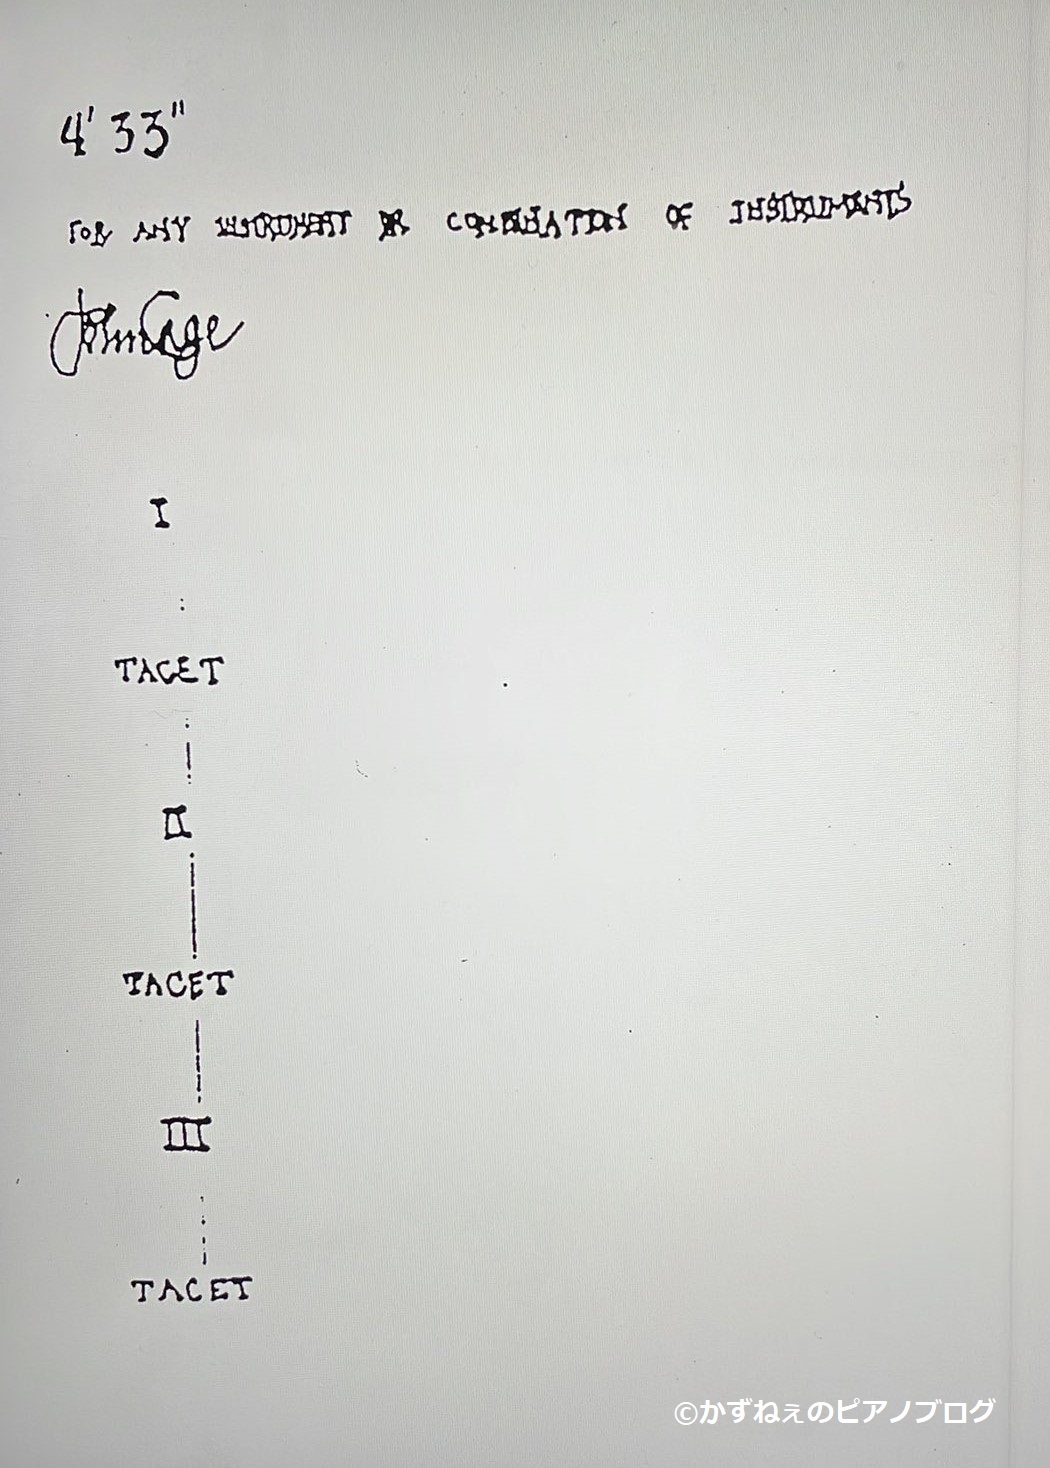 4' 33"
FOR ANY INSTRUMENT OR COMBINATION OF INSTRUMENTS
John Cage
I
TACET
II
TACET
III
TACET
©かずねぇのピアノブログ